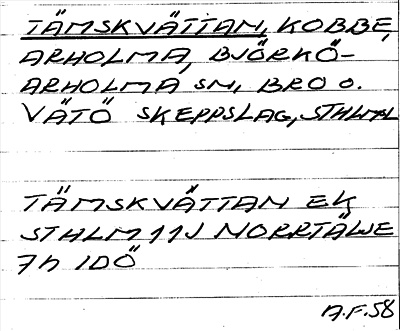 TÄMSKVÄTTAN, KOBBE,
ARHOLMA, BJÖRKÖ-
ARHOLMA SN, BRO O.
VÄTÖ SKEPPSLAG, STHLM L
TÄMSKVÄTTAN EK
STHLM 11J NORRTÄLJE
7h IDÖ
A.F. 58